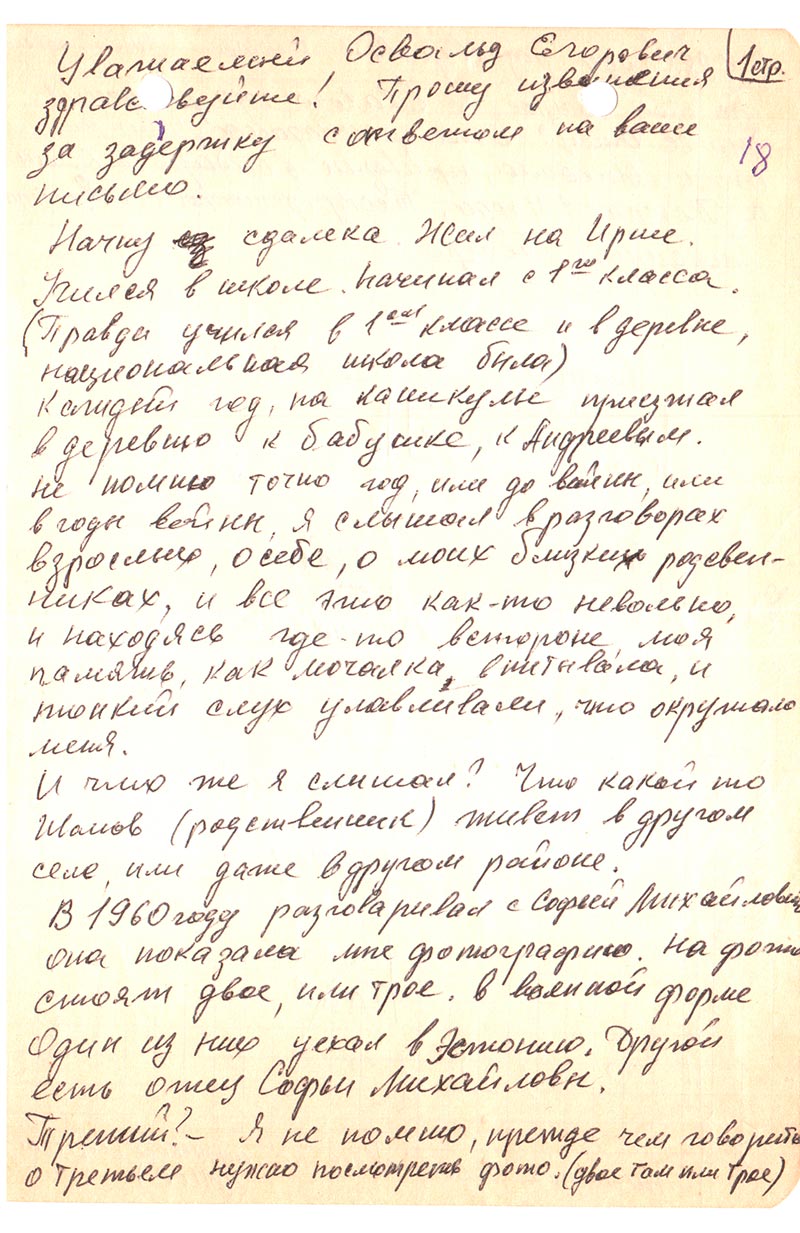 1 стр.
Уважаемый Освальд Егорович
здравствуйте! Прошу извинения
за задержку с ответом на ваше
18
письмо.
Начну сдалека. Жил на Ирше.
Учился в школе. Начинал с 1го класса.
(Правда учился в 1ом классе и в деревне,
национальная школа была)
Каждый год, на каникулы приезжал
в деревню к бабушке, к Андреевым.
не помню точно год, или до войны, или
в годы войны, я слышал в разговорах
взрослых, о себе, о моих близких родсвен-
никах, и все это как-то невольно,
и находясь где-то встороне, моя
память, как мочалка, впитывала, и
тонкий слух улавливали, что окружало
меня.
И что же я слышал? Что какой то
Шамов (родственник) живет в другом
селе, или даже в другом районе.
В 1960 году разговаривал с Софьей Михайловной
она показала мне фотографию. На фото
стоят двое, или трое. в военной форме
Один из них уехал в Эстонию. Другой
есть отец Софьи Михайловны.
Третий? – Я не помню, прежде чем говорить
о третьем нужно посмотреть фото. (двое там или трое)